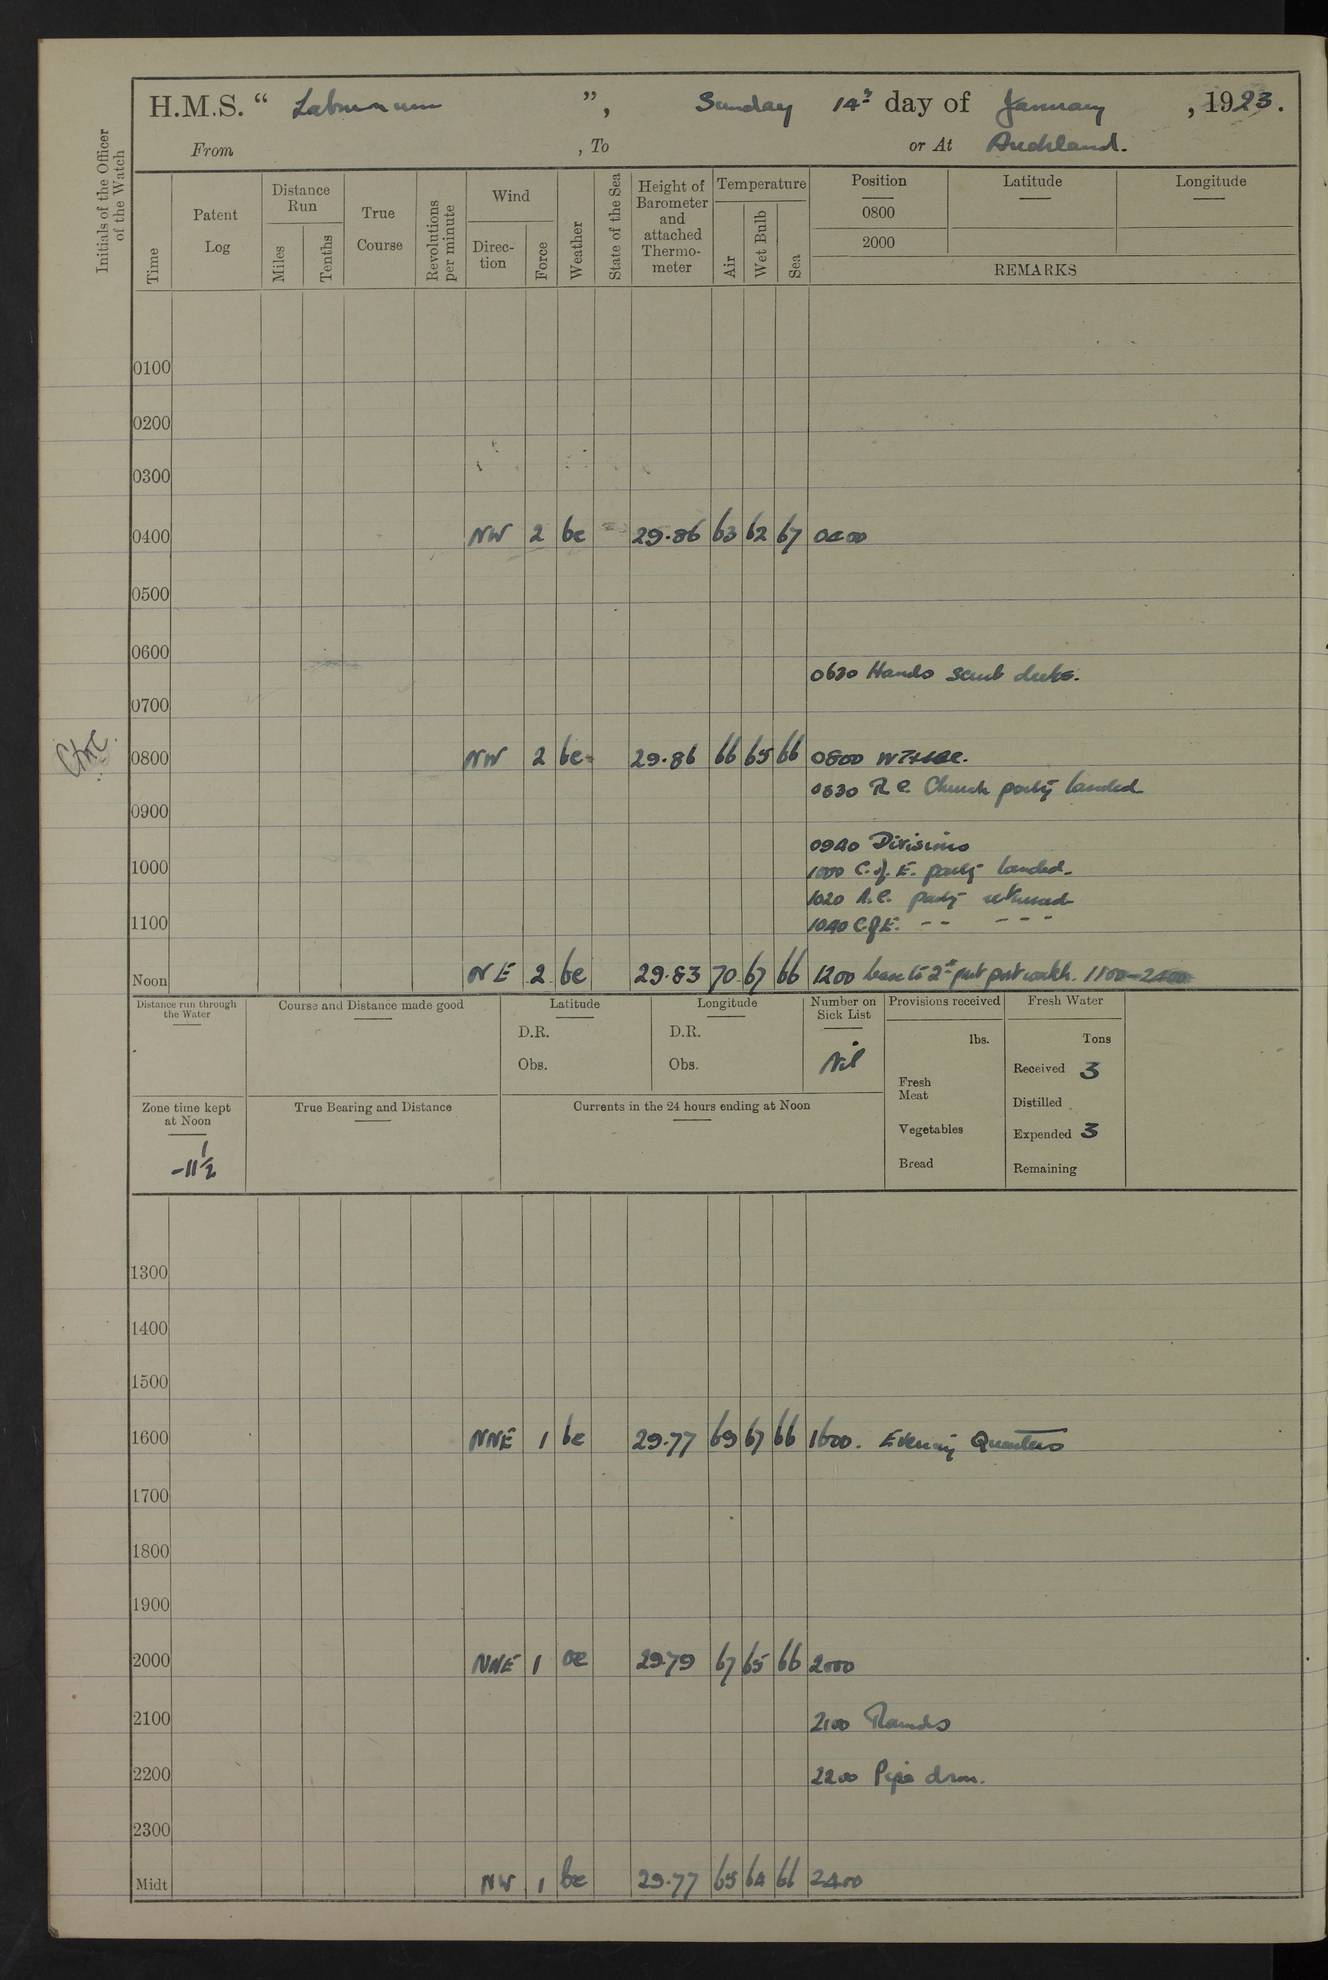 H.M.S. “ Laburnum ”, Sunday 14th day of January , 1923.
From , To or At Auckland.
Initials of the Officer of the Watch
Time
Patent Log
Distance Run
Miles
Tenths
True Course
Revolutions per minute
Wind
Direc-tion
Force
Weather
State of the Sea
Height of Barometer and attached Thermo-meter
Temperature
Air
Wet Bulb
Sea
Position Latitude Longitude
0800
2000
REMARKS
0100
0200
0300
0400 NW 2 bc 29.86 63 62 67 0400
0500
0600
0630 Hands scrub decks.
0700
0800 NW 2 bc 29.86 66 65 66 0800
0830 R.C. Church party landed
0900
0940 Divisions
1000 1000 C. of E. party landed.
1020 R.C. party returned
1100 1040 C of E. -- ---
Noon NE 2 bc 29.83 70 67 66 1200 leave to 2nd part port watch. 1300-2400
Distance run through the Water
Course and Distance made good
Latitude
D.R.
Obs.
Longitude
D.R.
Obs.
Number on Sick List
Nil
Provisions received
lbs.
Fresh Meat
Vegetables
Bread
Fresh Water
Tons
Received 3
Distilled
Expended 3
Remaining
Zone time kept at Noon
-11½
True Bearing and Distance
Currents in the 24 hours ending at Noon
1300
1400
1500
1600 NNE 1 bc 29.77 69 67 66 1600. Evening Quarters
1700
1800
1900
2000 NNE 1 bc 29.79 67 65 66 2000
2100 2100 Rounds
2200 2200 Pipe down.
2300
Midt NW 1 bc 29.77 65 64 66 2400